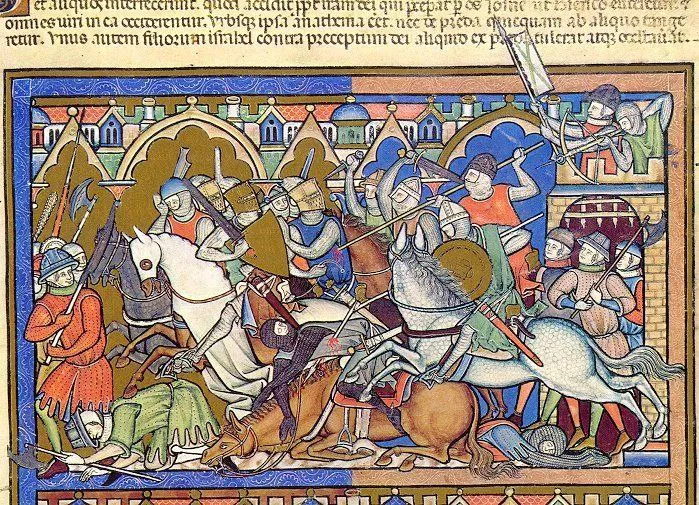 et aliquos interfecerunt. quod accidit ppt iram dei qui precepat p os Iosue ut Ierico euerteretur
omnes uiri in ea occiderentur. Vrbsq; ipsa anathema eet. nec de preda quicquam ab aliquo tange
retur. Vnus autem filiorum israel contra preceptum dei aliquid ex preda tulerat atq; occultauerat.